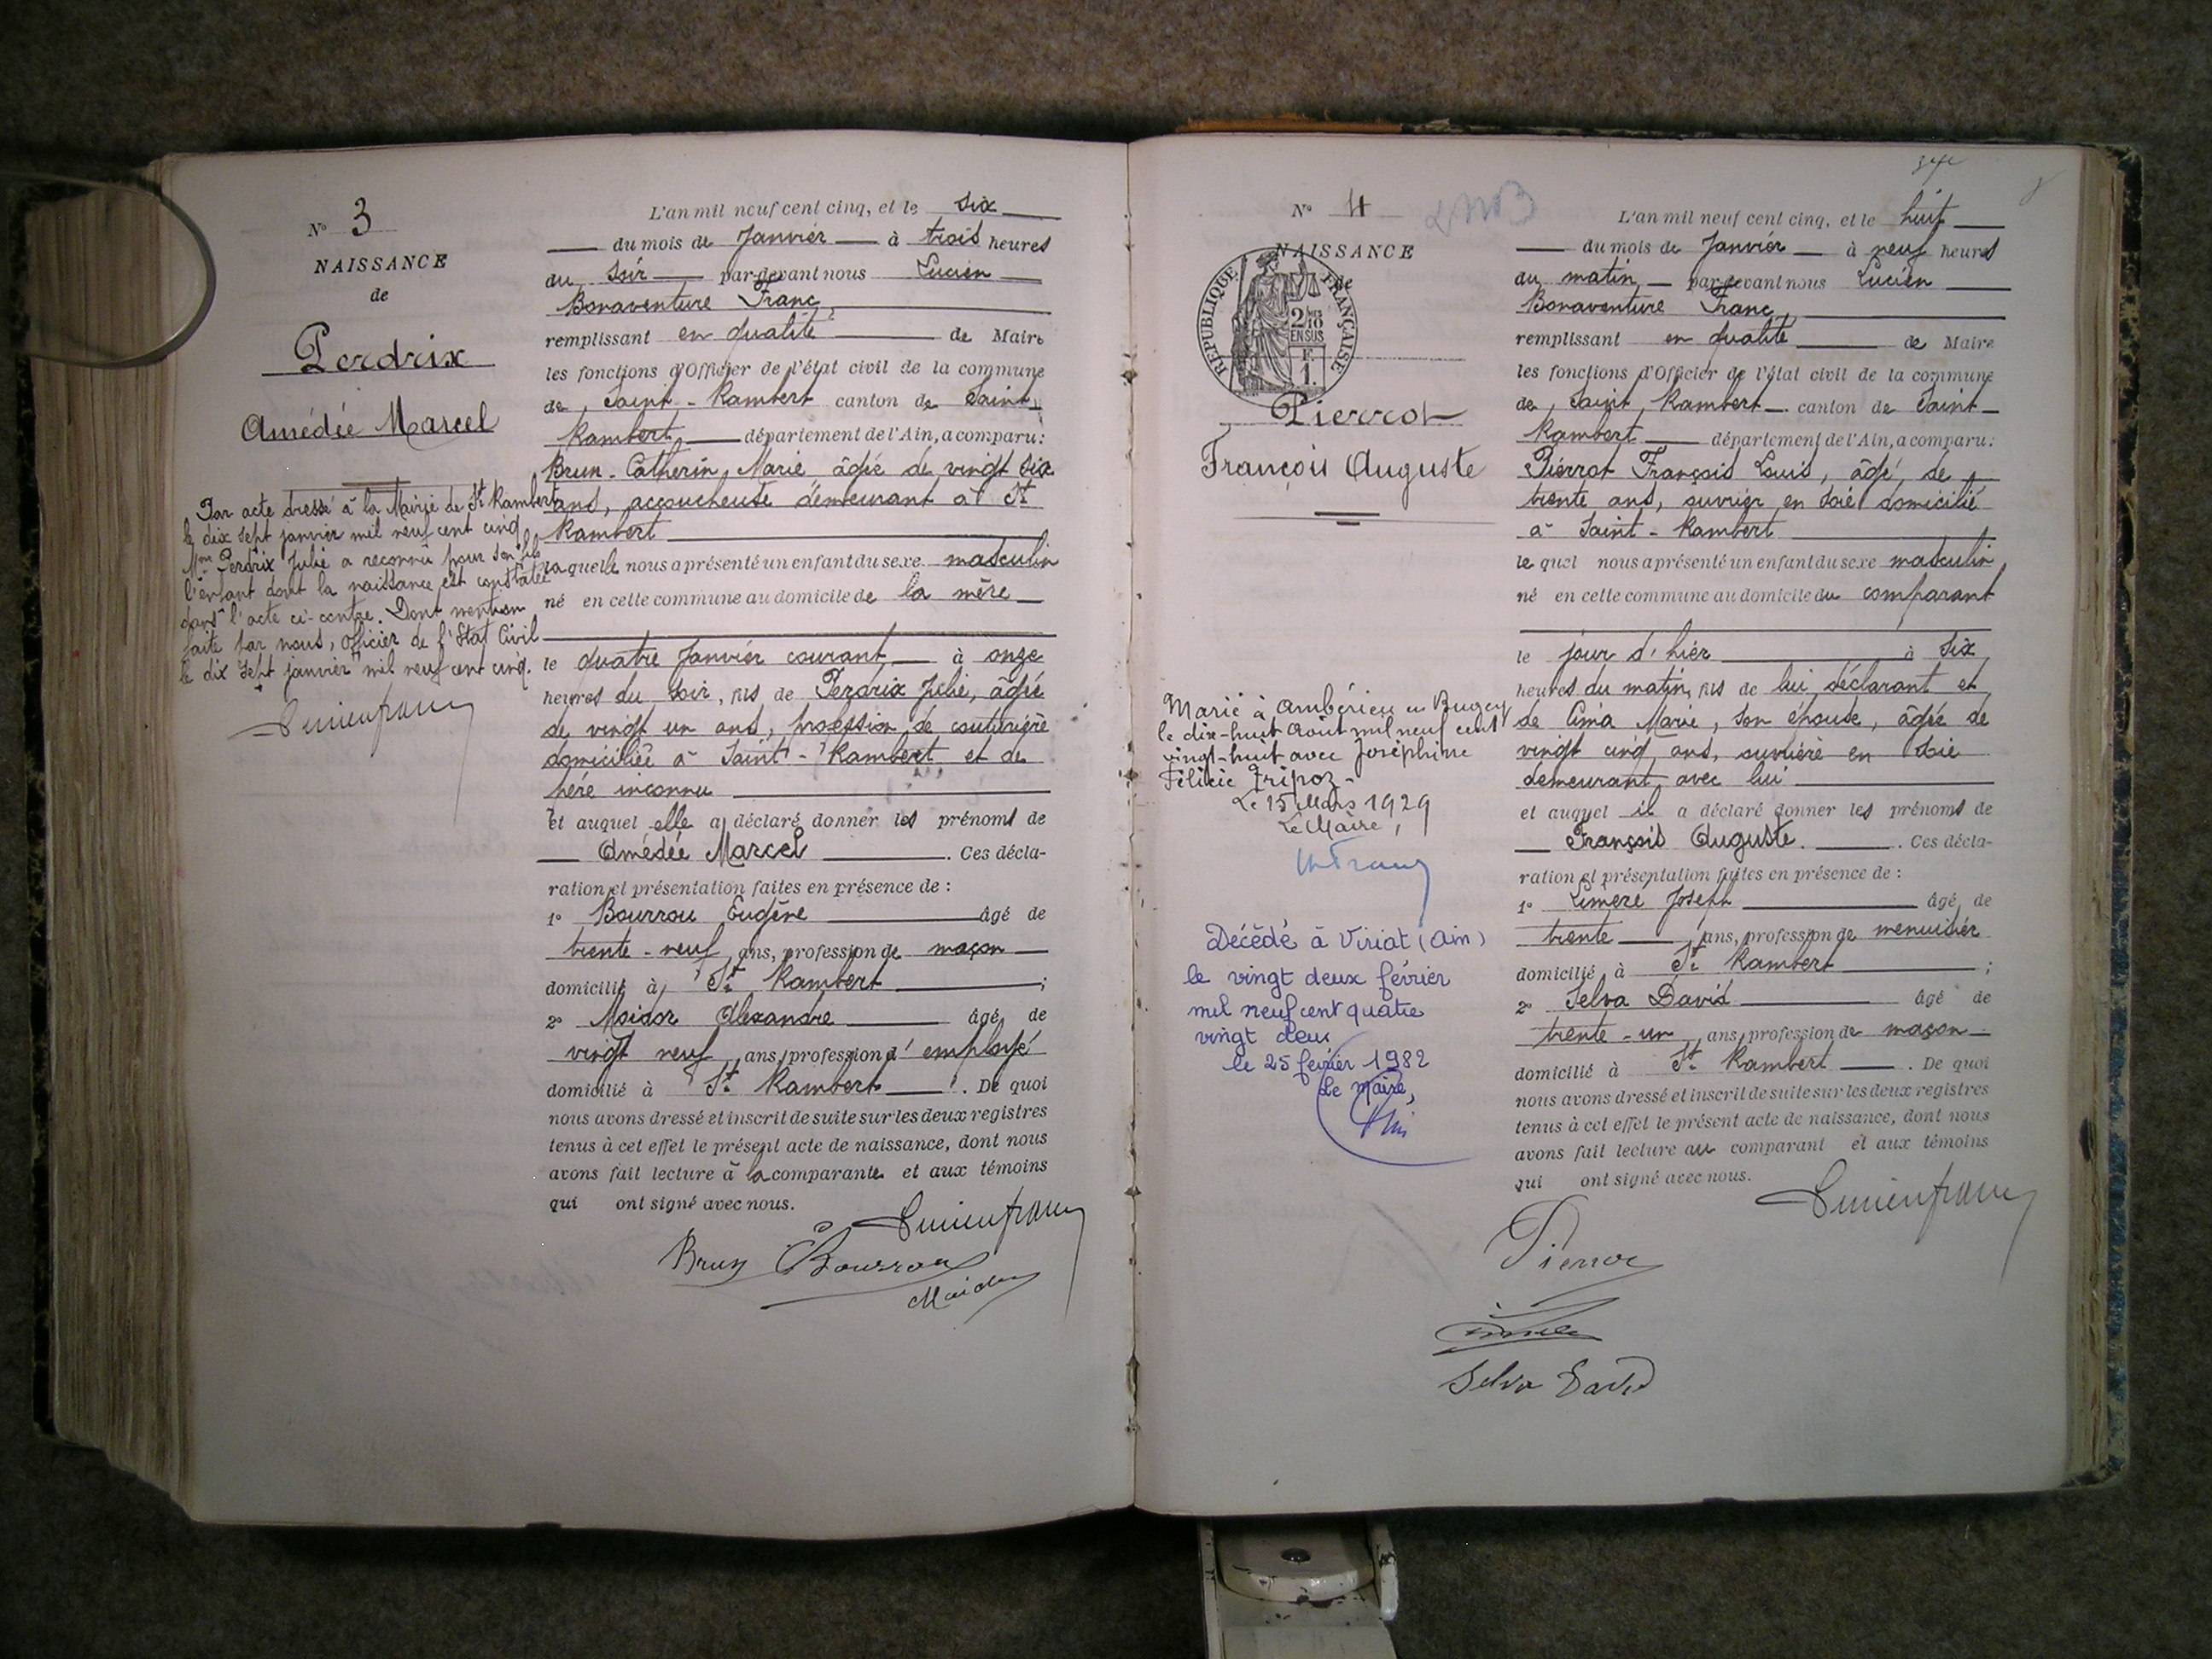 N° 3
NAISSANCE
de
Perdrix
Amédée Marcel
Par acte dressé à la Mairie de St Rambert
le dix sept janvier mil neuf cent cinq
Perdrix Julie a reconnu pour son fils
l'enfant dont la naissance est constatée
dans l'acte ci-contre. Dont mention
faite par nous, officier de l'Etat Civil
le dix sept janvier mil neuf cent cinq.
Lucien franc
L'an mil neuf cent cinq, et le six
du mois de Janvier à trois heures
du soir par-devant nous Lucien
Bonaventure Franc,
remplissant en qualité de Maire
les fonctions d'Officier de l'état civil de la commune
de Saint-Rambert canton de Saint-
Rambert département de l'Ain, a comparu:
Brun-Catherin Marie âgée de vingt six
ans, accoucheuse demeurant à St
Rambert
laquelle nous a présenté un enfant du sexe masculin
né en cette commune au domicile de la mère
le quatre Janvier courant à onze
heures du soir, fils de Perdrix Julie, âgée
de vingt un ans, profession de couturière
domiciliée à Saint-Rambert et de
père inconnu
et auquel elle a déclaré donner les prénoms de
Amédée Marcel . Ces décla-
ration et présentation faites en présence de :
1° Bourrou Eugène âgé de
trente-neuf ans, profession de maçon
domicilié à St Rambert ;
2° Moidor Alexandre âgé de
vingt neuf ans, profession d'employé
domicilié à St Rambert . De quoi
nous avons dressé et inscrit de suite sur les deux registres
tenus à cet effet le présent acte de naissance, dont nous
avons fait lecture à la comparante et aux témoins
qui ont signé avec nous.
Lucien franc
Brun Bourrou
N° 4
NAISSANCE
de
REPUBLIQUE FRANÇAISE
2/10
EN SUS
F.
1.
Pierrot
François Auguste
Marié à Ambérieu en Bugey
le dix-huit Août mil neuf cent
vingt-huit avec Joséphine
Félicie Fripoz-
Le 15 Mars 1929
Le Maire,
Décédé à Viriat (Ain)
le vingt deux février
mil neuf cent quatre
vingt deux
le 25 février 1982
Le Maire,
L'an mil neuf cent cinq, et le huit
du mois de Janvier à neuf heures
du matin par-devant nous Lucien
Bonaventure Franc,
remplissant en qualité de Maire
les fonctions d'Officier de l'état civil de la commune
de Saint Rambert canton de Saint-
Rambert département de l'Ain, a comparu:
Pierrot François Louis, âgé de
trente ans, ouvrier en soie domicilié
à Saint-Rambert
lequel nous a présenté un enfant du sexe masculin
né en cette commune au domicile du comparant
le jour d'hier à six
heures du matin, fils de lui déclarant et
de Cima Marie, son épouse, âgée de
vingt cinq ans, ouvrière en soie
demeurant avec lui
et auquel il a déclaré donner les prénoms de
François Auguste. . Ces décla-
ration et présentation faites en présence de :
1° Joseph âgé de
trente ans, profession de menuisier
domicilié à St Rambert ;
2° Selva David âgé de
trente-un ans, profession de maçon
domicilié à St Rambert . De quoi
nous avons dressé et inscrit de suite sur les deux registres
tenus à cet effet le présent acte de naissance, dont nous
avons fait lecture au comparant et aux témoins
qui ont signé avec nous.
Lucien franc
Pierrot
Selva David